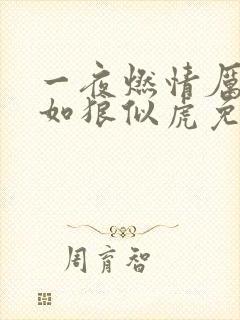 一夜燃情厉
如狼似虎免
周育智